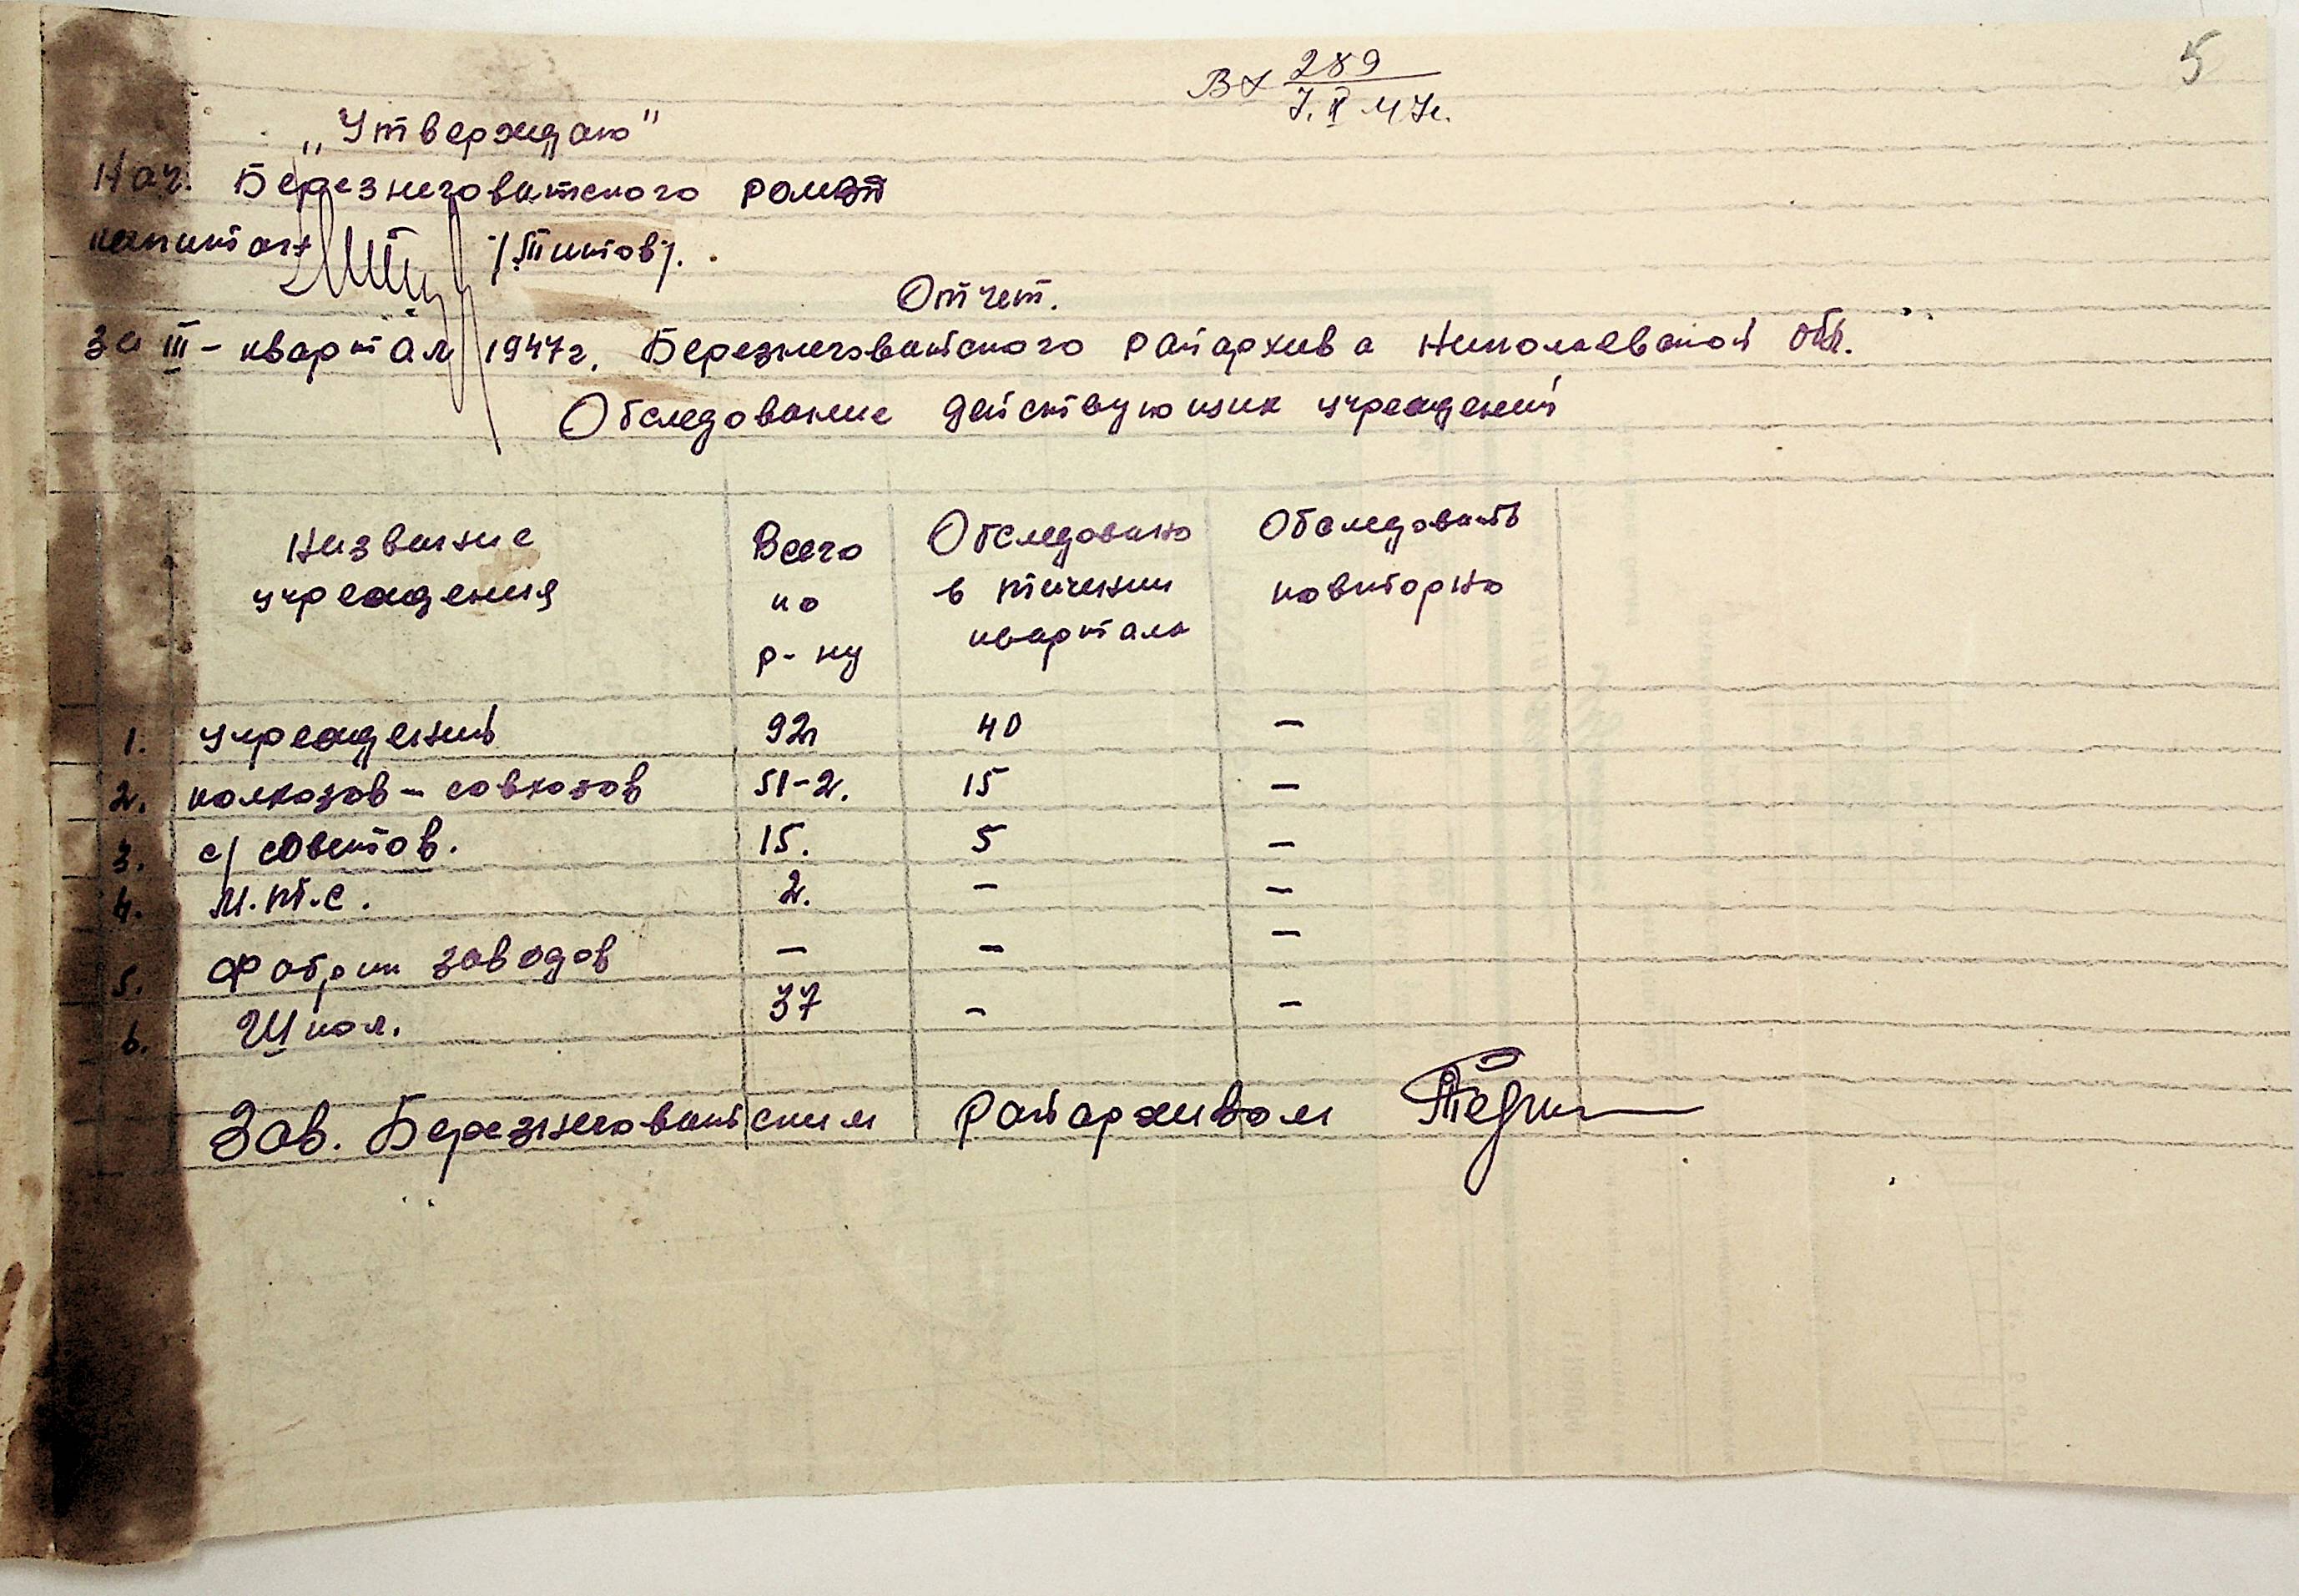 5
Вх 289
7.X 47г.
„Утверждаю"
Нач. Березнеговатского РО МВД
капитан /Титов/.
Отчет.
За III - квартал 1947г. Березнеговатского райархива Николаевской обл.
Обследование действующих учреждений
Название учреждения Всего по р-ну Обследовано в течении квартала Обследовать повторно
1. учреждений 92 40 –
2. колхозов - совхозов 51-2. 15 –
3. с/советов. 15. 5 –
4. М.Т.С. 2. – –
5. Фабрик заводов – – –
6. Школ. 37 – –
Зав. Березнеговатским райархивом